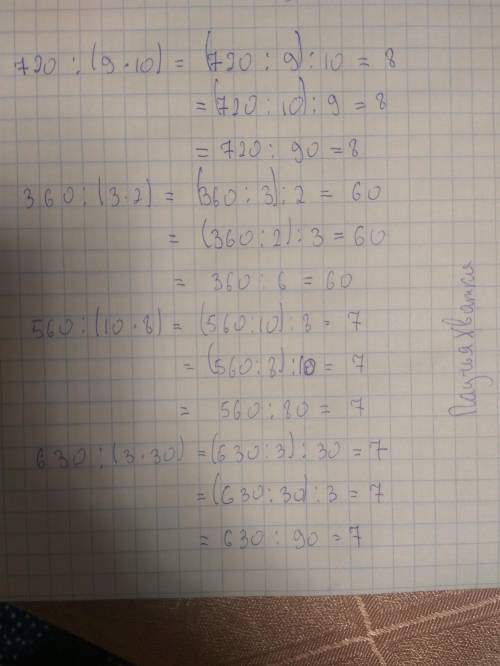 720 : (9 · 10) = (720 : 9) : 10 = 8
= (720 : 10) : 9 = 8
= 720 : 90 = 8
360 : (3 · 2) = (360 : 3) : 2 = 60
= (360 : 2) : 3 = 60
= 360 : 6 = 60
560 : (10 · 8) = (560 : 10) : 8 = 7
= (560 : 8) : 10 = 7
= 560 : 80 = 7
630 : (3 · 30) = (630 : 3) : 30 = 7
= (630 : 30) : 3 = 7
= 630 : 90 = 7